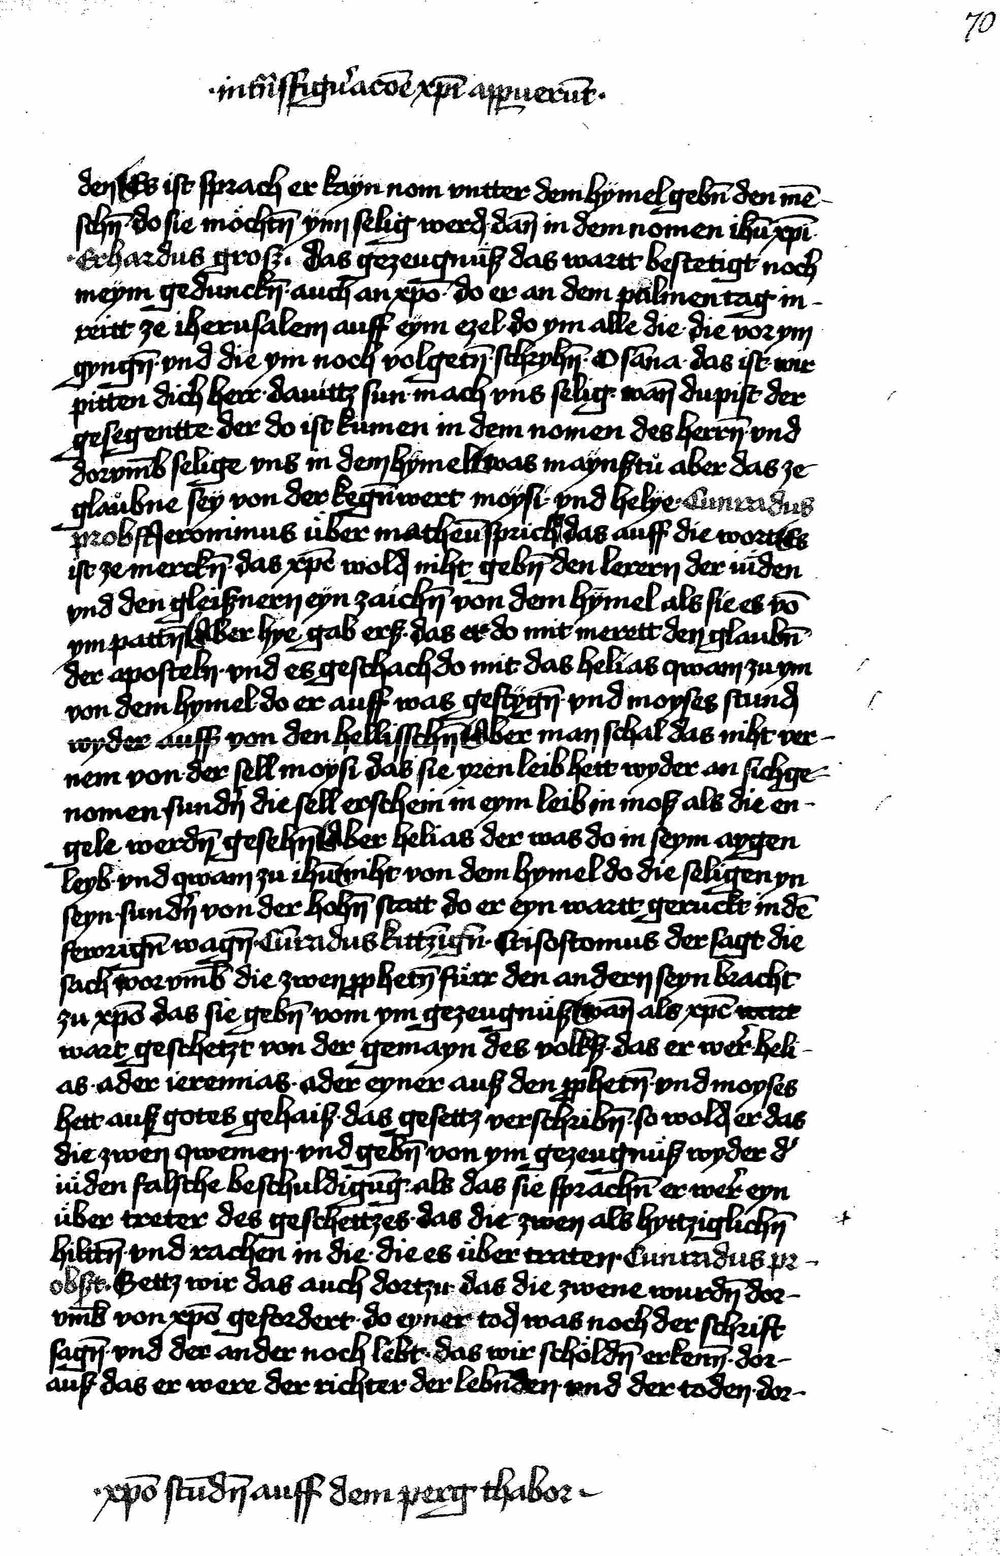 70
·in trãſſigur̾acõe xp̄i apꝑuerūt·
den Es iſt ſprach er kayn nom vntter dem hymel gebn̄ den mē-
ſchn̄· do sie möchtn̄ ynn selig werd dan̄ in dem nomen ihū xp̄i
·Erhardus groſz· Das gezeugnüſz das wartt beſtetigt noch
meym gedunckn̄· auch an xp̄o· do er an dem palmentag in-
reitt ze iheruſalem auff eym ezel· do ym alle die· die vor ym
gyngn̄· vnd die ym noch volgetn̄ ſchryhn̄· Oſān̄a· das iſt· wir
pitten dich herr dauittz sun· mach vns selig· wan̄ du piſt der
geſegentte· der do iſt kumen in dem nomen des herrn̄· vnd
dorvm̄b selige vns in dem hymel was maynſtu aber das ze
glaubne sey von der kegn̄wert moyſi· vnd helye· Cunradus
probſt Jeronimus über matheū ſprich das auff die wort Es
iſt ze merckn̄· das xp̄c wold niht gebn̄ den lerern der iüden
vnd den gleiſznern eyn zaichn̄ von dem hymel als sie es vō
ym pattn̄ Aber hye gab erſz· das er do mit merett den glaubn̄
der apoſteln· vnd es geſchach do mit das helias qwam zu ym
von dem hymel· do er auff was geſtygn̄ vnd moyſes ſtund
wyder auff von den helliſſchn̄ Aber man ſchal das niht ver-
nem von der sell moyſi· das sie yren leib hett wyder an sich ge-
nomen· sundn̾ die sell erſchein in eym leib in moſz als die en-
gele werdn̄ geſehn̄ Aber helias der was do in seym aygen
leyb· vnd qwam zu ihū niht von dem hymel do die seligen yn
seyn· sundn̾ von der hohn̄ ſtatt do er eyn wartt geruckt in dē
fewrign̄ wagn̄· Cūradus kittzīgn̄· Criſoſtomus der sagt die
sach worvm̄b die zwen ꝓphetn̄ fürr den andern seyn bracht
zu xp̄o das sie gebn̄ vom ym gezeugnüſz wan̄ als xp̄c wart
wart geſchetzt von der gemayn des volkſz· das er wer̾ heli-
as· ader ieremias· ader eyner auſz den ꝓphetn̄· vnd moyſes
hett auſz gotes gehaiſz· das geſettz verſchribn̄· so wold er das
die zwen qwemen· vnd gebn̄ von ym gezeugnüſz wyder d̾
iüden falſche beſchuldigūg· als das sie ſprachn̄ er wer̾ eyn
über treter des geſchettzes· das die zwen als hyttziglichn̄
hiltn̄· vnd rachen in die· die es über traten· Cunradus pr-
obſzt· Settz wir das auch dortzu· das die zwene wurdn̄ dor-
vm̄b von xp̄o gefordert· do eyner tod was noch der ſchrift
sagn̄· vnd der ander noch lebt· das wir ſchöldn̄ erken̄n· dor-
auſz das er were der richter der lebn̄den· vnd der toden· dor-
·xp̄o ſtūdn̄ auff dem perg thabor-